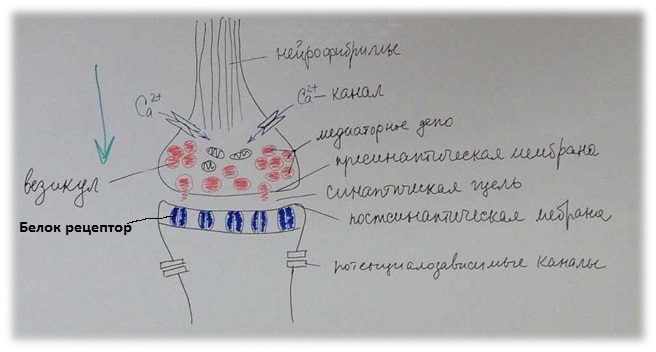 нейрофибриллы
Ca²⁺
Ca²⁺— канал
медиаторное депо
везикул
пресинаптическая мембрана
синаптическая щель
Белок рецептор
постсинаптическая мебрана
потенциалозависимые каналы